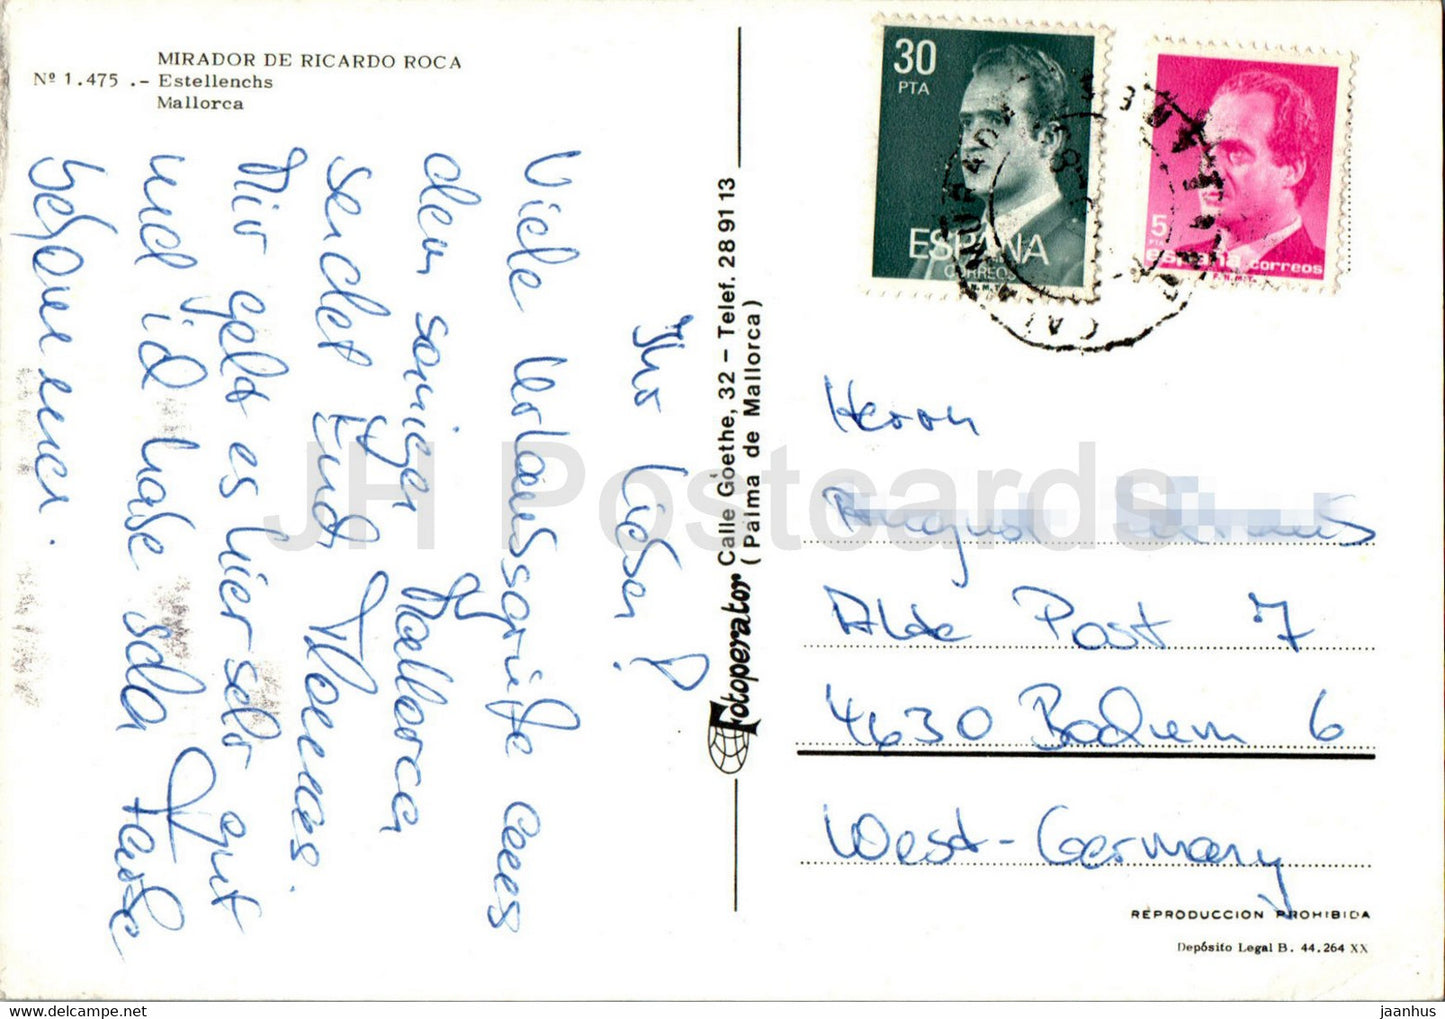 MIRADOR DE RICARDO ROCA
Nº 1.475 .- Estellenchs
Mallorca
Ihr Lieben!
Viele Urlaubsgrüße aus
dem sonnigen Mallorca
sendet Euch Thomas.
Mir geht es hier sehr gut
und ich habe schon Farbe
bekommen.
Fotoperator Calle Goethe, 32 - Telef. 28 91 13
(Palma de Mallorca)
30
PTA
ESPAÑA
CORREOS
F.N.M.T.
5
PTA
españa correos
F.N.M.T.
Herrn
August
Alde Post 7
4630 Bochum 6
West-Germany
REPRODUCCION PROHIBIDA
Depósito Legal B. 44.264 XX
JH Postcards
https://www.delcampe.net
jaanhus